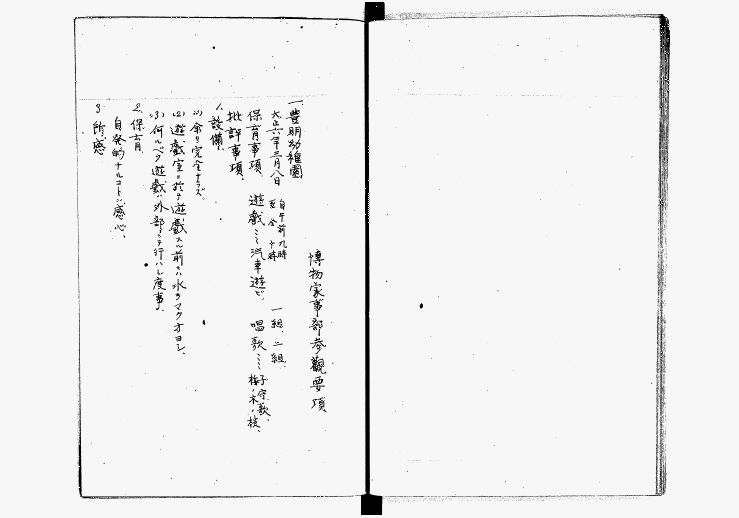 博物家事部参觀要項
一、豊明幼稚園
大正六年三月八日 自午前九時 至仝十時 一組、二組
保育事項、 遊戯…汽車遊ビ、 唱歌… 子守歌、梅ノ木ノ枝、
批評事項、
1、設備、
(1) 余リ完全ナラズ。
(2) 遊戯室ニ於テ遊戯スル前ニハ水ヲマクオヨシ、
(3) 何ルベク遊戯ハ外部ニテ行ハレ度事、
2、保育
自発的ナルコトニ感心、
3 所感